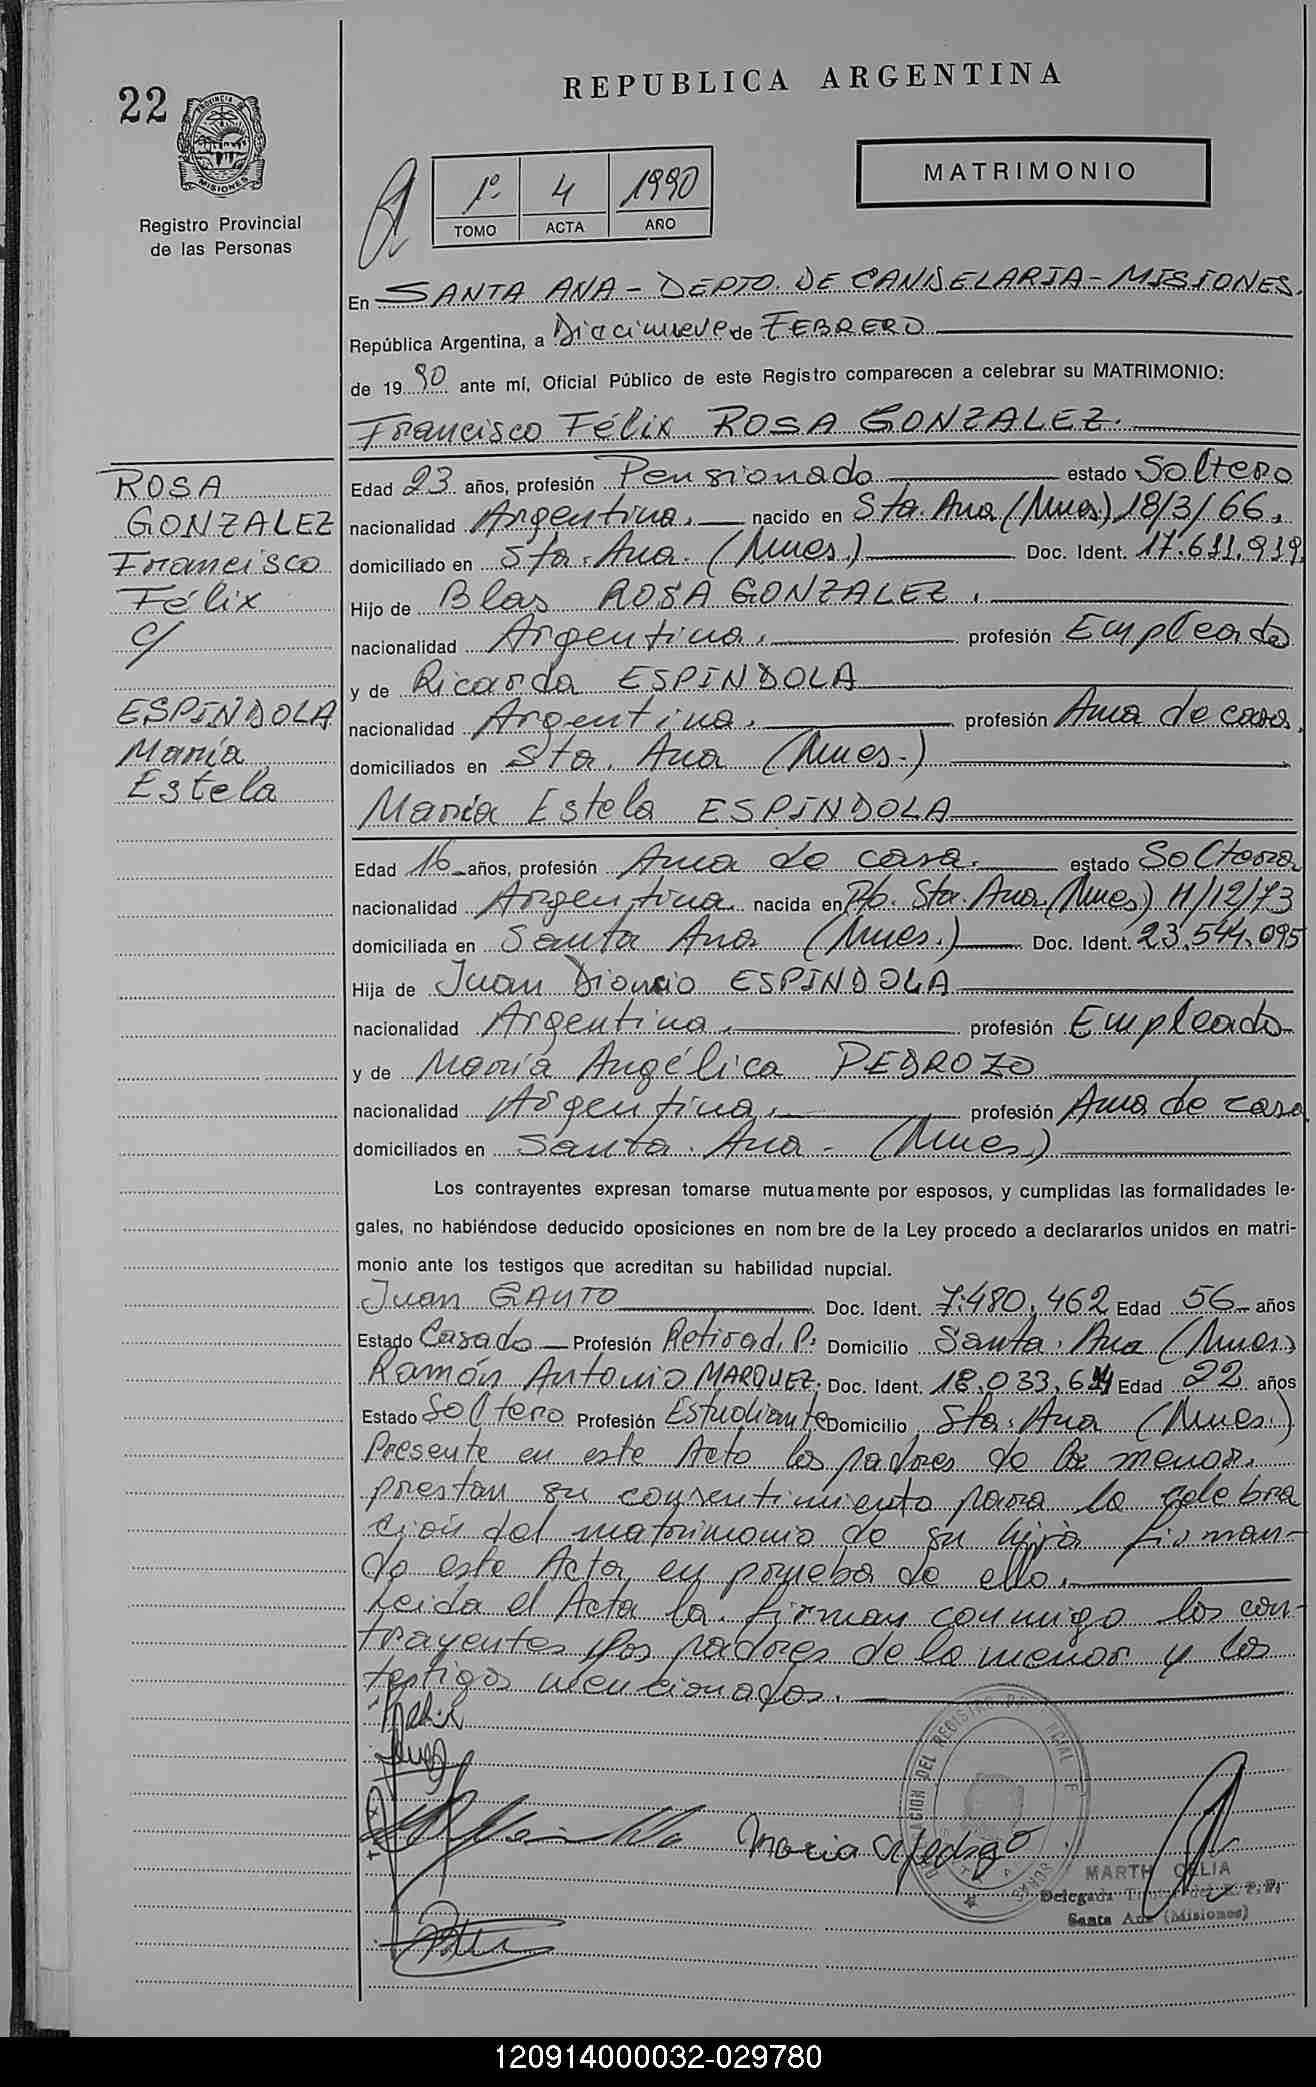 REPUBLICA ARGENTINA
22
PROVINCIA DE
MISIONES
Registro Provincial
de las Personas
MATRIMONIO
1º. 4 1990
TOMO ACTA AÑO
En SANTA ANA - DEPTO. DE CANDELARIA - MISIONES.
República Argentina, a Diecinueve de FEBRERO
de 1990 ante mí, Oficial Público de este Registro comparecen a celebrar su MATRIMONIO:
Francisco Félix ROSA GONZALEZ.
ROSA
GONZALEZ
Francisco
Félix
c/
ESPINDOLA
María
Estela
Edad 23 años, profesión Pensionado estado Soltero
nacionalidad Argentina. nacido en Sta. Ana (Mnes) 18/3/66.
domiciliado en Sta. Ana. (Mnes.) Doc. Ident. 17.611.919
Hijo de Blas ROSA GONZALEZ.
nacionalidad Argentina. profesión Empleado
y de Ricarda ESPINDOLA
nacionalidad Argentina. profesión Ama de casa.
domiciliados en Sta. Ana (Mnes.)
María Estela ESPINDOLA
Edad 16 años, profesión Ama de casa. estado Soltera
nacionalidad Argentina nacida en Pb. Sta. Ana (Mnes) 11/12/73
domiciliada en Santa Ana (Mnes.) Doc. Ident. 23.544.095
Hija de Juan Dionicio ESPINDOLA
nacionalidad Argentina. profesión Empleado
y de María Angélica PEDROZO
nacionalidad Argentina. profesión Ama de casa
domiciliados en Santa. Ana - (Mnes.)
Los contrayentes expresan tomarse mutuamente por esposos, y cumplidas las formalidades le-
gales, no habiéndose deducido oposiciones en nom bre de la Ley procedo a declararlos unidos en matri-
monio ante los testigos que acreditan su habilidad nupcial.
Juan GAUTO Doc. Ident. 7.480.462 Edad 56 años
Estado Casado Profesión Retirad. P. Domicilio Santa. Ana (Mnes)
Ramón Antonio MARQUEZ. Doc. Ident. Edad 22 años
Estado Soltero Profesión Estudiante Domicilio Sta. Ana (Mnes.)
Presente en este Acto los padres de la menor.
prestan su consentimiento para la celebra
ción del matrimonio de su hija firman-
do este Acta en prueba de ello.
Leida el Acta la firman conmigo los con-
trayentes los padres de la menor y los
testigos mencionados.
Maria
MARTH CELIA
Delegada Titular del R. P. P.
Santa Ana (Misiones)
120914000032-029780